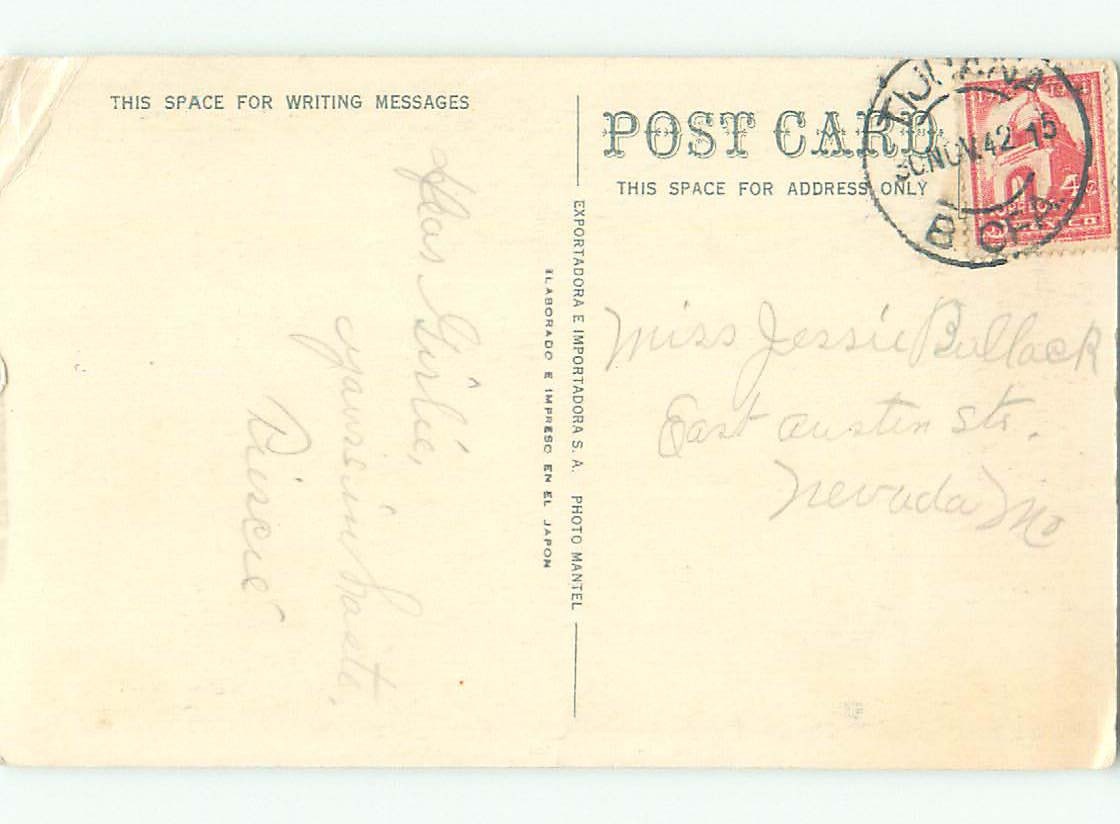 THIS SPACE FOR WRITING MESSAGES
Girlie,
yours in haste,
POST CARD
THIS SPACE FOR ADDRESS ONLY
EXPORTADORA E IMPORTADORA S. A. PHOTO MANTEL
ELABORADO E IMPRESO EN EL JAPON
TIJUANA
30 NOV. 42 -15
B. CFA.
4
MEXICO
Miss Jessie Bullock
East Austin Str.
Nevada Mo